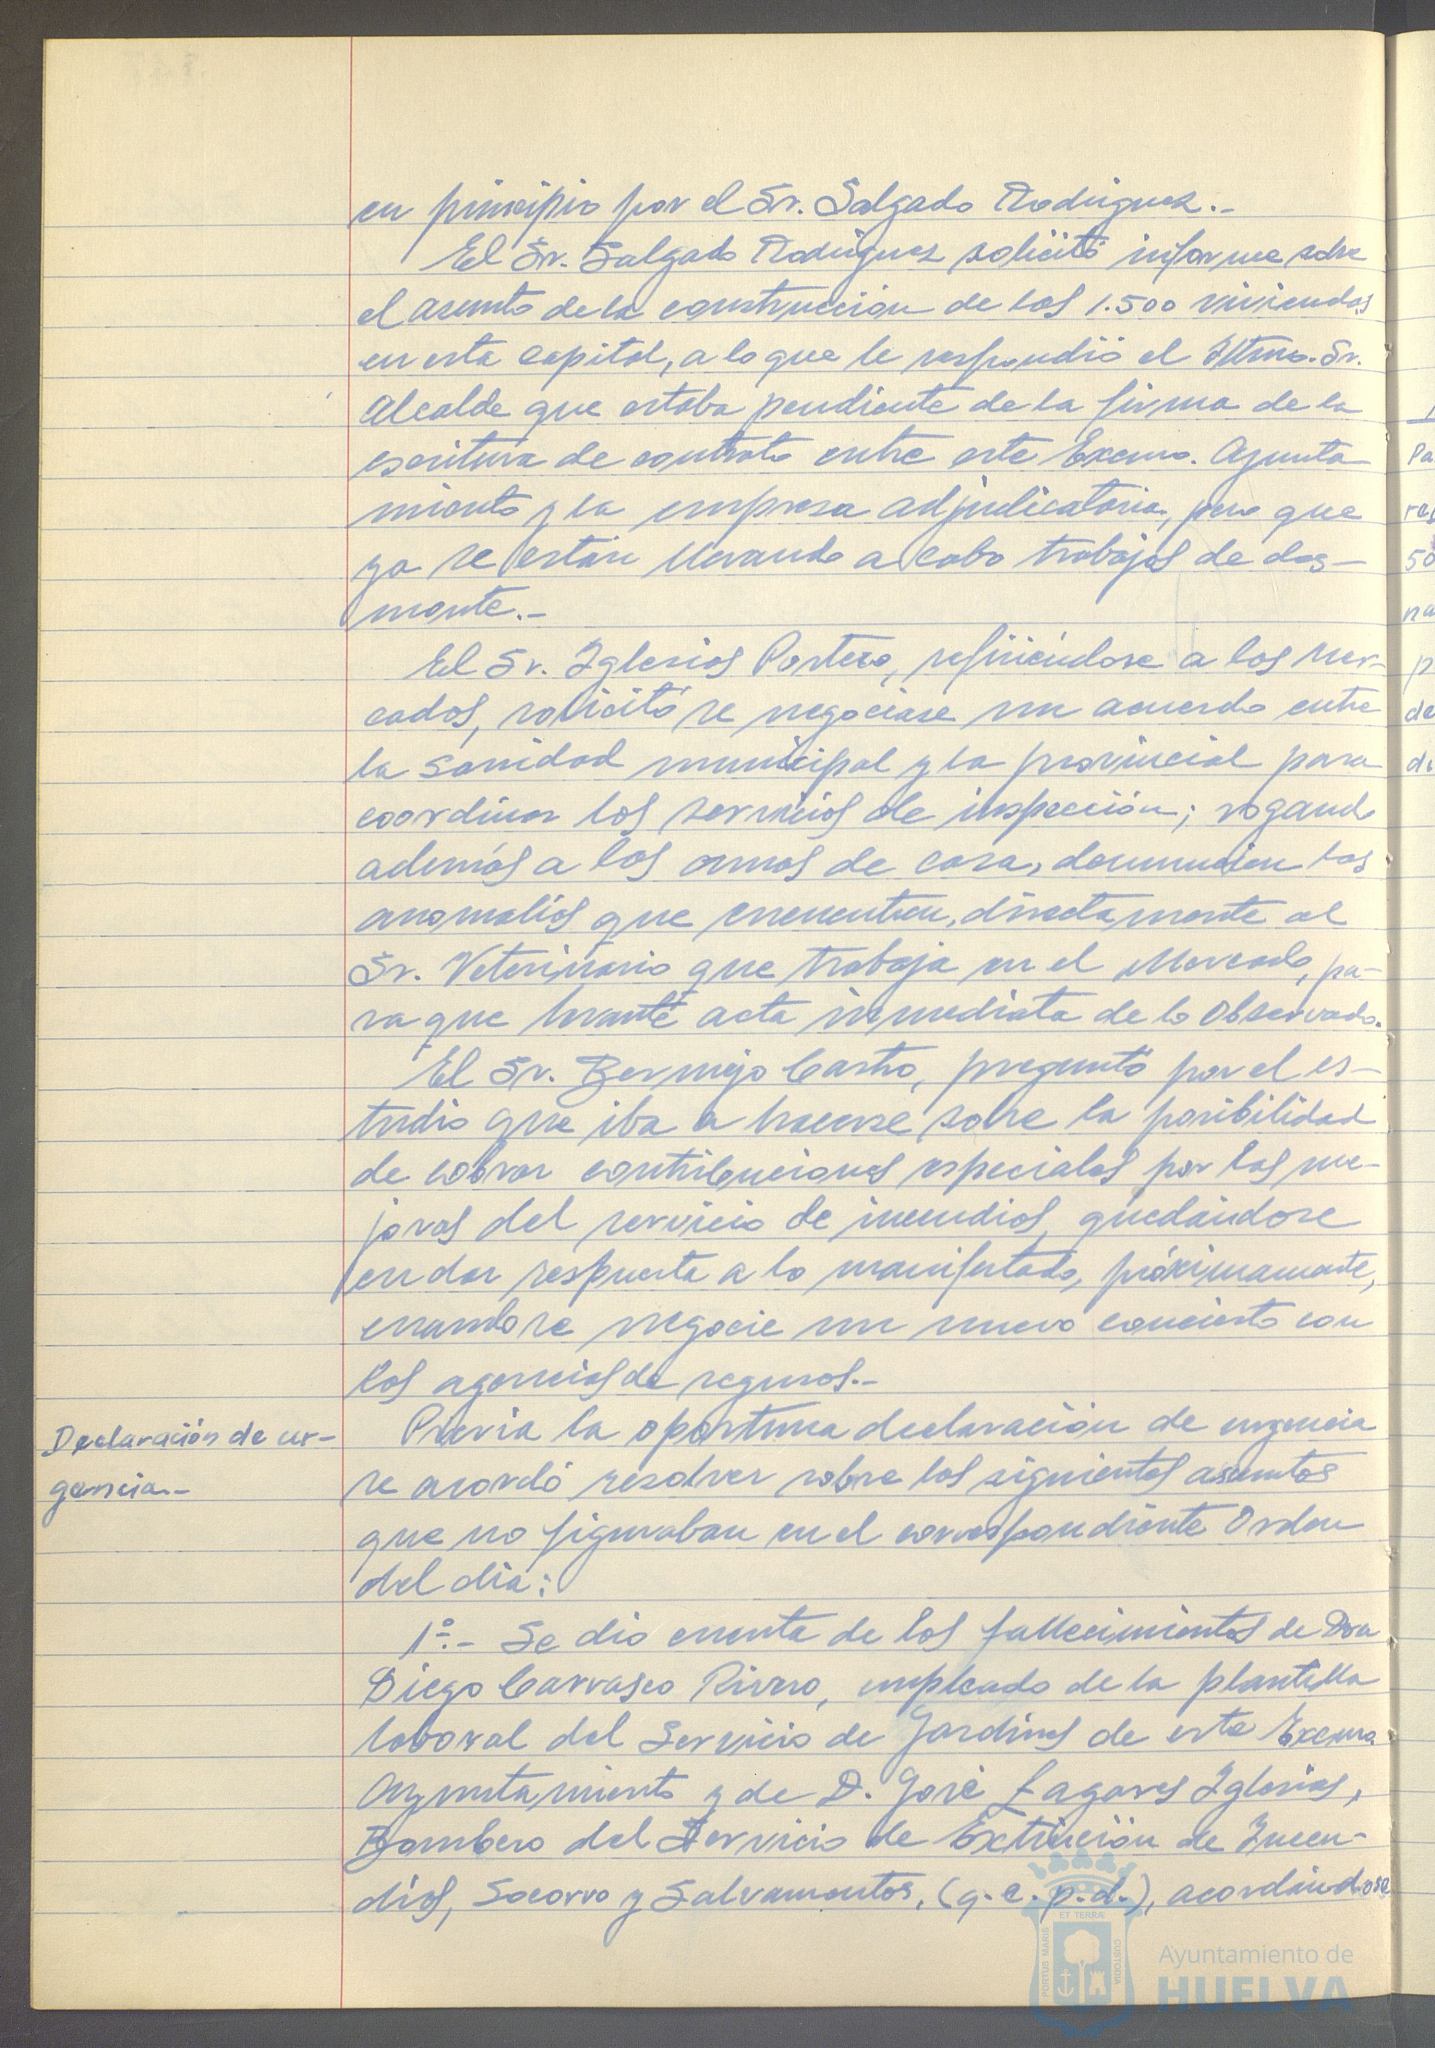 en principio por el Sr. Salgado Rodriguez.-
El Sr. Salgado Rodriguez solicitó informe sobre
el asunto de la construcción de las 1.500 viviendas
en esta capital, a lo que le respondió el Iltmo. Sr.
Alcalde que estaba pendiente de la firma de la
escritura de contrato entre este Excmo. Ayunta-
miento y la empresa adjudicataria, pero que
ya se están llevando a cabo trabajos de des-
monte.-
El Sr. Iglesias Portero, refiriéndose a los mer-
cados, solicitó se negociase un acuerdo entre
la sanidad municipal y la provincial para
coordinar los servicios de inspección; rogando
además a las amas de casa, denuncien las
anomalias que encuentren, directamente al
Sr. Veterinario que trabaja en el Mercado, pa-
ra que levante acta inmediata de lo observado.
El Sr. Bermejo Castro, preguntó por el es-
tudio que iba a hacerse sobre la posibilidad
de cobrar contribuciones especiales por las me-
joras del servicio de incendios, quedándose
en dar respuesta a lo manifestado, próximamente,
cuando se negocie un nuevo concierto con
las agencias de seguros.-
Declaración de ur-
gencia.-
Previa la oportuna declaración de urgencia
se acordó resolver sobre los siguientes asuntos
que no figuraban en el correspondiente Orden
del dia:
1º.- Se dio cuenta de los fallecimientos de Don
Diego Carrasco Rivero, empleado de la plantilla
laboral del Servicio de Jardines de este Excmo
Ayuntamiento y de D. José Lagares Iglesias,
Bombero del Servicio de Extinción de Incen-
dios, Socorro y Salvamentos, (q.e.p.d.), acordándose
Pa
50
na
p
de
di
PORTUS MARIS
ET TERRÆ
CUSTODIA
Ayuntamiento de
HUELVA